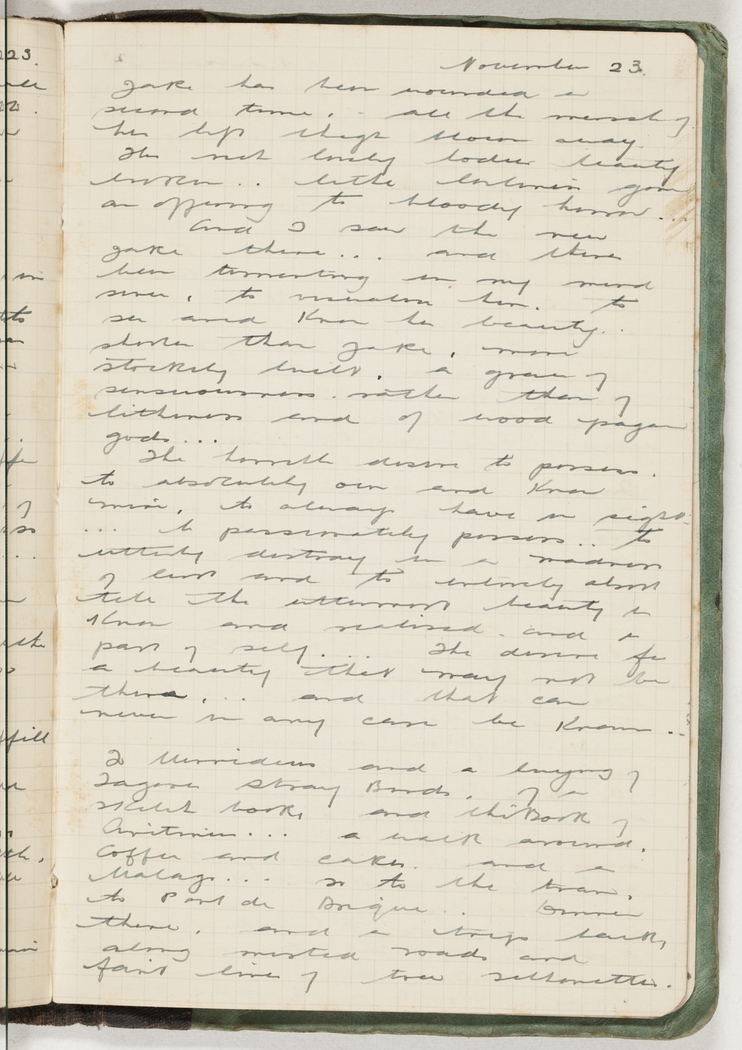 223.
November 23.
Jake has been wounded a
second time, - all the muscle of
his left thigh blown away
The most lovely bodies beauty
broken .. lithe gone
an offering to bloody horror ...
And I saw the new
Jake there ... and there
been tormenting in my mind
since, to visualise him. to
see and know his beauty ..
shorter than Jake, more
stockily built, a grace of
sensuousness rather than of
litheness and of wood pagan
gods ...
The horrible desire to possess.
to absolutely own and know
mine, to always have in sight
... to passionately possess .. to
utterly destroy in a madness
of lust and to entirely
the uttermost beauty is
known and realised and a
part of self .... The desire for
a beauty that may not be
there, .. and that can
never in any case be known ..
To and a buying of
Tagores Stray Birds, of a
sketch book, and the Book of
... a walk around,
coffee and cakes. and a
Malaga ... so to the tram,
to Pont de Brique .. Dinner
there, and a tramp back,
along misted roads and
faint lines of tree silhouettes.